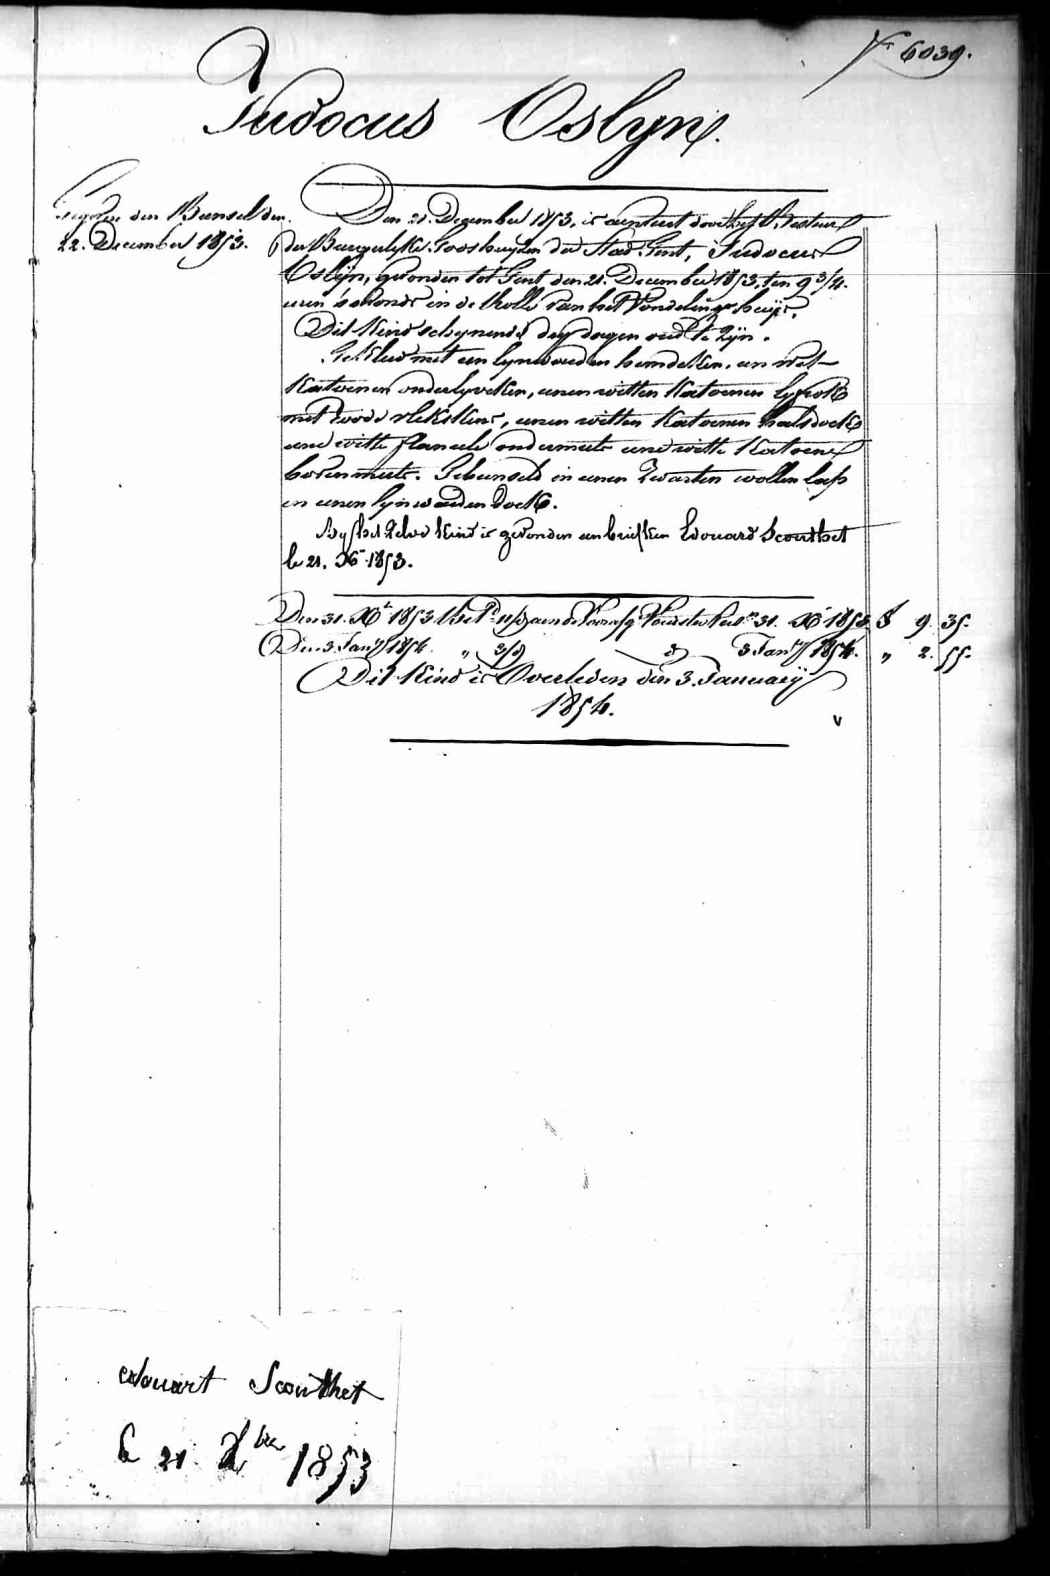 6039.
Judocus Oslyn.
den Bunsel den
22. December 1853.
Den 21. December 1853, is aenveert door het Bestuer
der Burgerlyke Godshuyzen der Stad Gent, Judocus
Oslyn, gevonden tot Gent den 21. December 1853, ten 9 3/4.
uren s'avonds in de Rolle van het Vondelingshuys.
Dit Kind schynende dry dagen oud te zyn.
Gekleed met een lynwaeden hemdeken, een wit
Katoenen onderlyveken, eenen witten Katoenen lyfrok
met roode vlekskens, eenen witten Katoenen halsdoek
eene witte flanele ondermuts eene witte Katoene
bovenmuts. Gebunseld in eenen zwarten wollen lap
en eenen lynwaeden doek.
By het zelve Kind is gevonden een briefken Edouard Scouthet
le 21. Xb 1853.
Den 31. Xb 1853 31. Xb 1853 9. 35.
Den 3. Jany 1854. " 3 Jany 1854. " 2. 55.
Dit Kind is Overleden den 3. January
1854.
edouart Scouthet
le 21 Xbre 1853